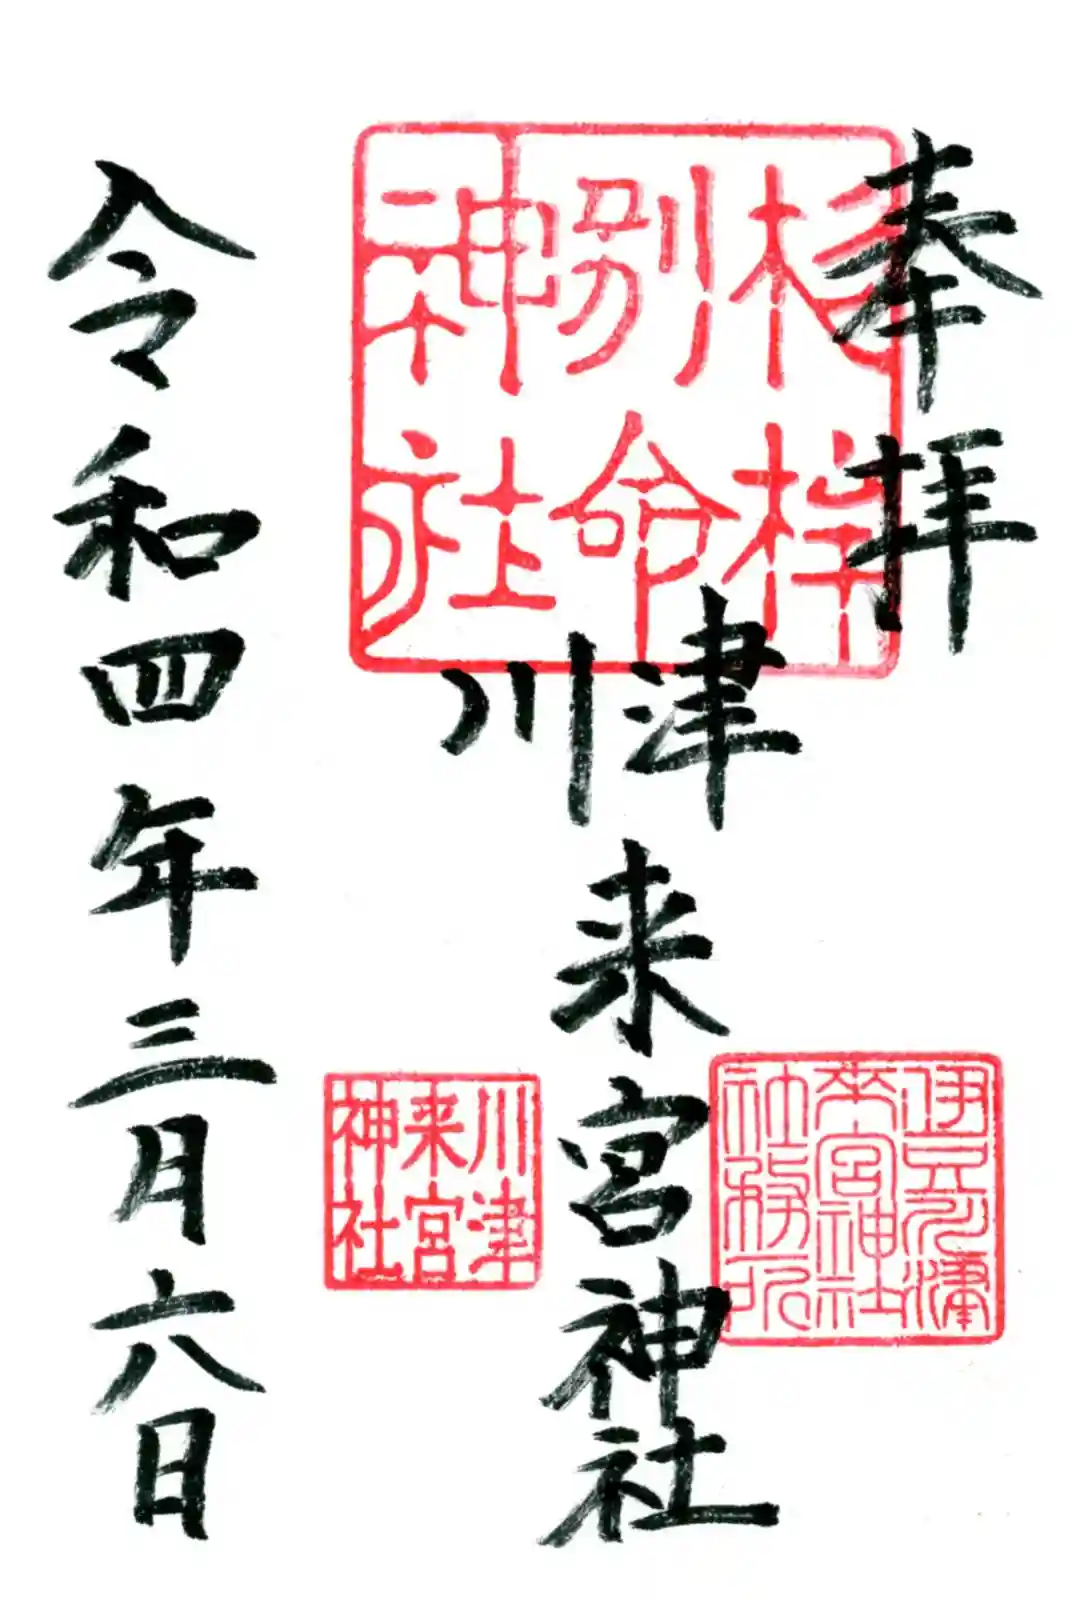 奉拝
川津
来宮神社
令和四年三月六日
杉桙
別命
神社
川津
来宮
神社
伊豆川津
来宮神社
社務所